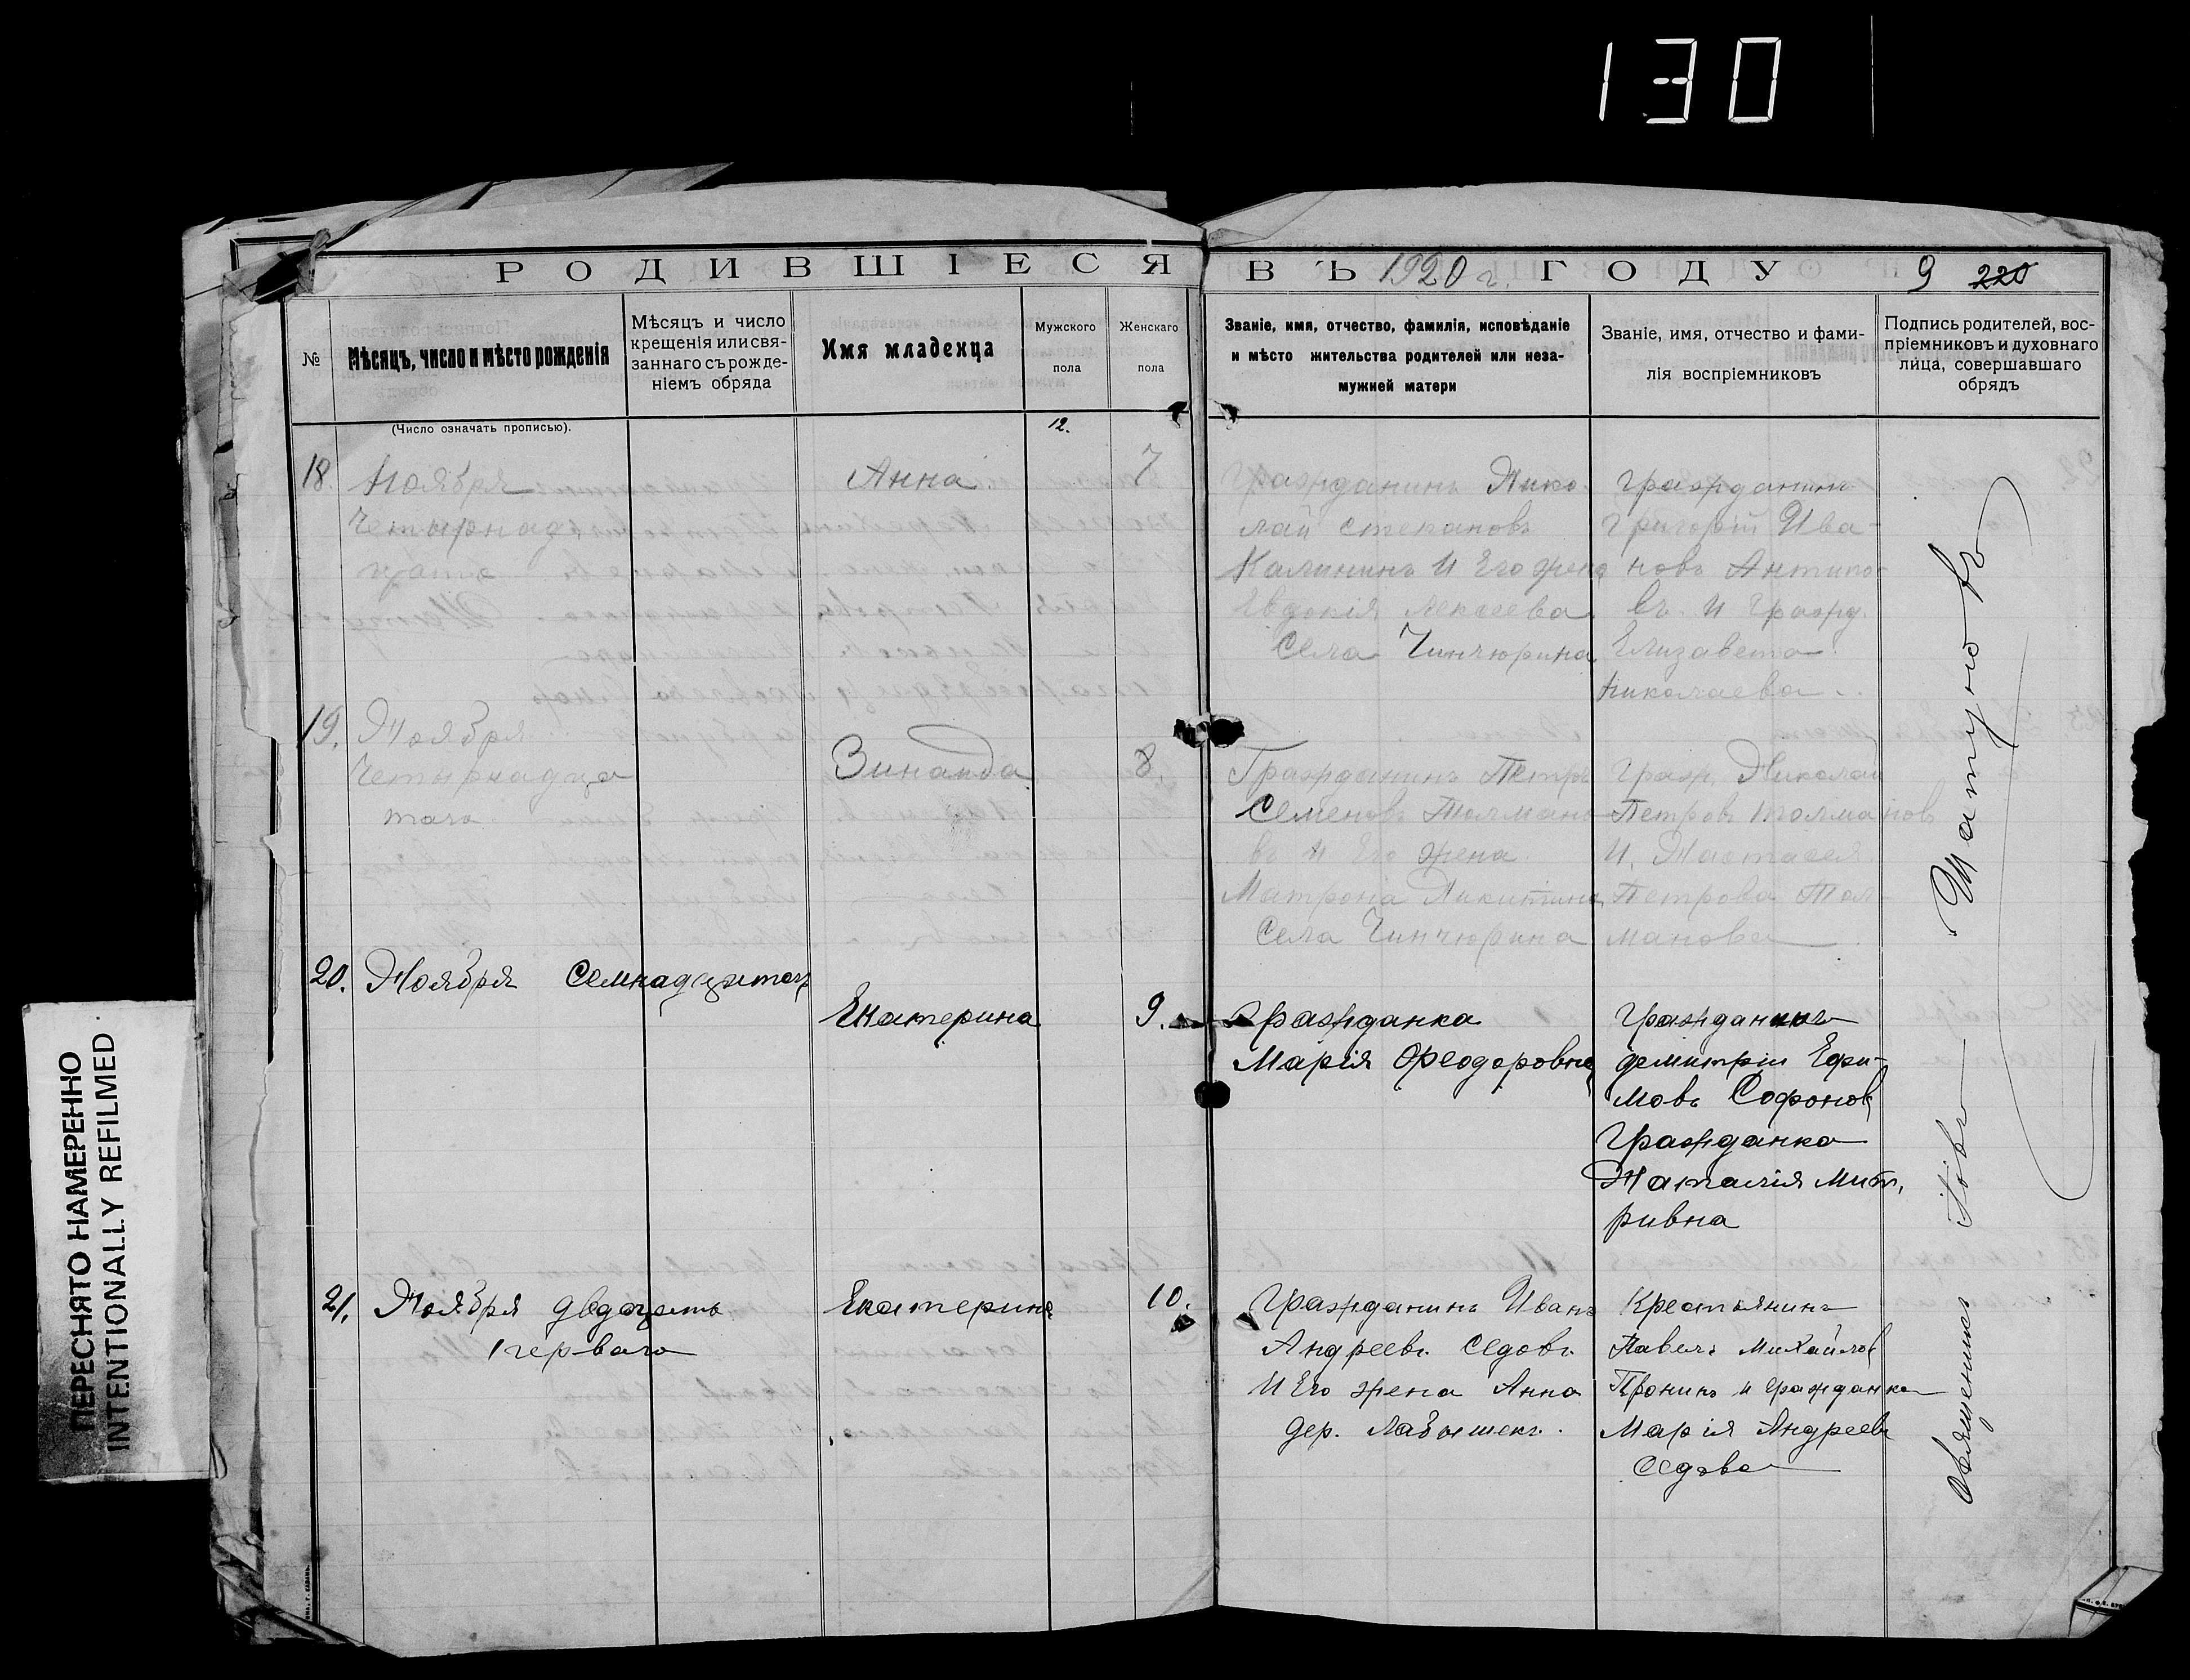 130
РОДИВШІЕСЯ ВЪ 1920 г. ГОДУ 9 220
№
Мѣсяцъ, число и мѣсто рожденія
Мѣсяцъ и число
крещенія или свя-
заннаго съ рожде-
ніемъ обряда
Имя младенца
Мужского
пола
Женскаго
пола
Званіе, имя, отчество, фамилія, исповѣданіе
и мѣсто жительства родителей или неза-
мужней матери
Званіе, имя, отчество и фами-
лія воспріемниковъ
Подпись родителей, вос-
пріемниковъ и духовнаго
лица, совершавшаго
обрядъ
(Число означать прописью).
12.
18.
Ноября
Четырнадь
цата
Анна.
7
Гражданинъ Нико
лай Степановъ
Калининъ И Его жена
Евдокія Алексеева
Села Чинчюрина
Гражданинъ
Григорій Ива-
новъ Антипо-
въ. И Гражд.
Елизавета
Николаева.
19.
Ноября
Четырнадца
таго
Зинаида
8.
Гражданинъ Петръ
Семеновъ Толмано
въ И Его жена
Матрона Никитина
Села Чинчюрина
Граж. Николай
Петровъ Толмановъ
И. Настасея
Петрова Тол-
манова
20.
Ноября Семнадцатаго
Екатерина
9.
Гражданка
Марія Ѳеодоровна
Гражданинъ
Демитрій Ефи-
мовъ Софонов
Гражданка
Наталія Мит,
ривна
21.
Ноября двадцать
перваго
Екатерина
10.
Гражданинъ Иванъ
Андреевъ Седовъ
И Его жена Анна
дер. Лабышекъ.
Крестьянинъ
Павелъ Михайлов
Пронинъ и гражданка
Марія Андреев
Седова
Священникъ Шатуновъ
ПЕРЕСНЯТО НАМЕРЕННО
INTENTIONALLY REFILMED